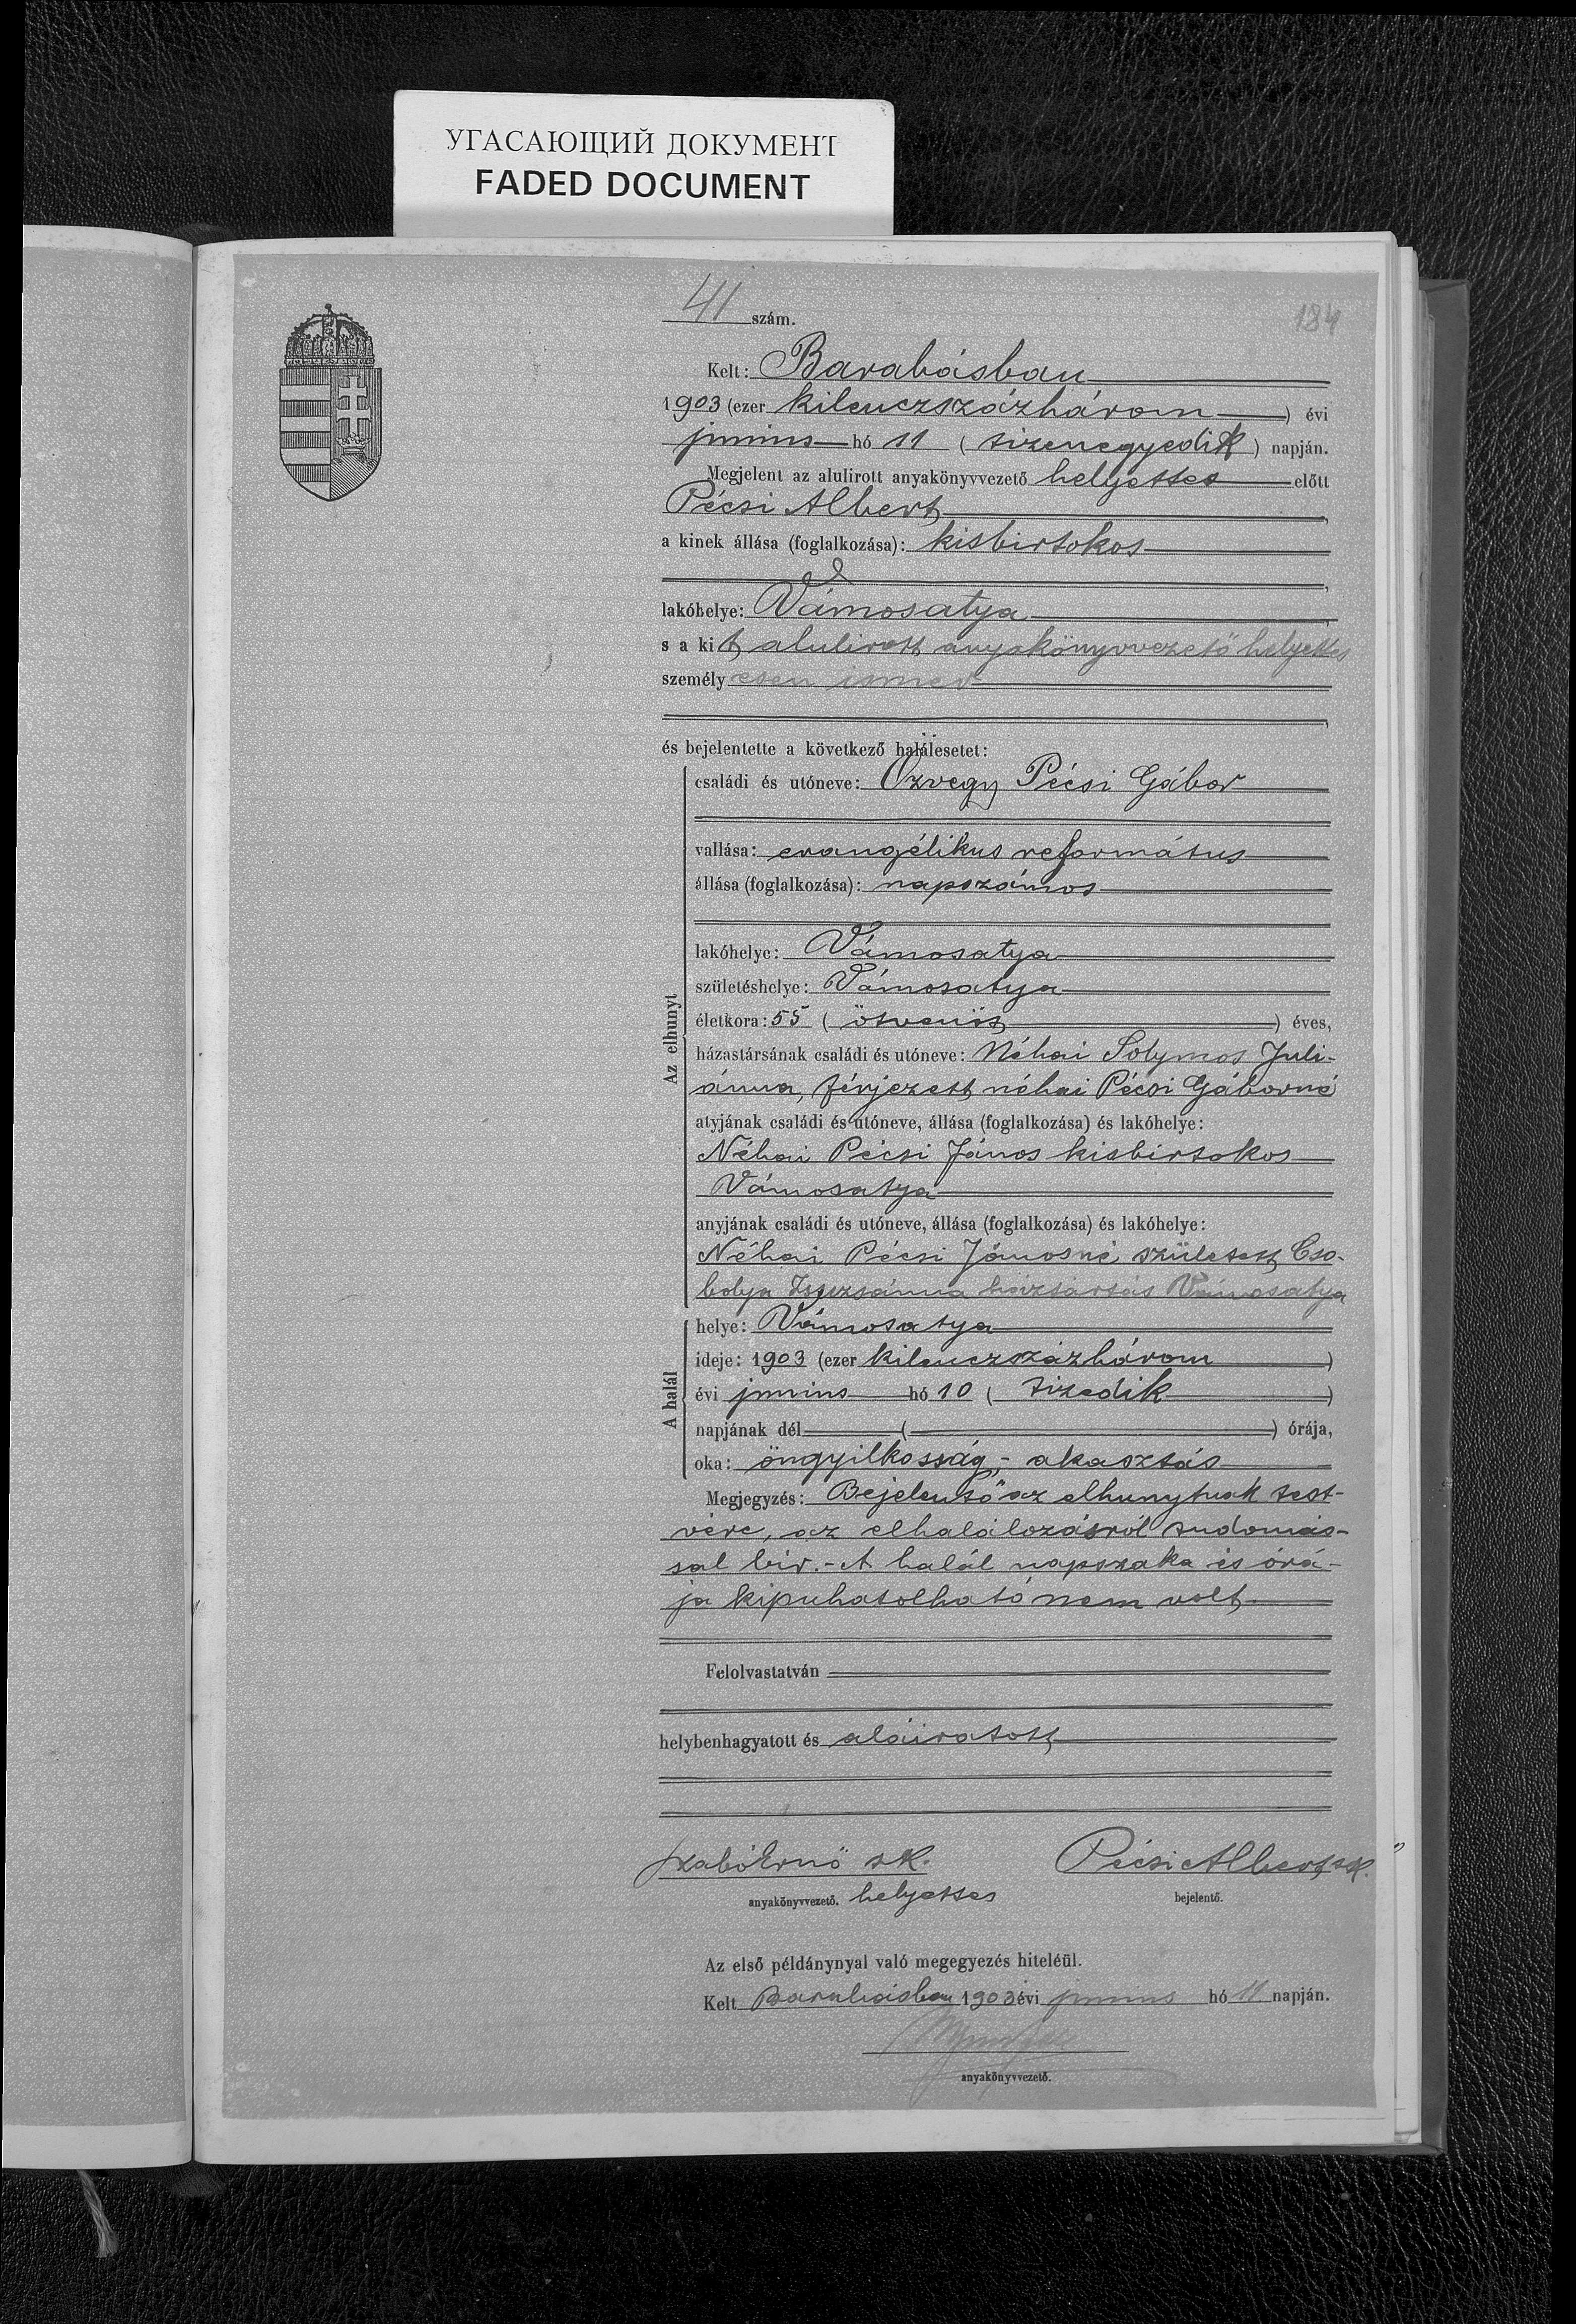 УГАСАЮЩИЙ ДОКУМЕНТ
FADED DOCUMENT
41 szám.
184
Kelt: Barabásban
1903 (ezer kilenczszázhárom) évi
junius hó 11 (tizenegyedik) napján.
Megjelent az alulirott anyakönyvvezető helyettes előtt
Pécsi Albert,
a kinek állása (foglalkozása): kisbirtokos
lakóhelye: Vámosatya,
s a kit alulirott anyakönyvvezető helyettes
személyesen ismer
és bejelentette a következő halálesetet:
Az elhunyt
családi és utóneve: Özvegy Pécsi Gábor
vallása: evangélikus református
állása (foglalkozása): napszámos
lakóhelye: Vámosatya
születéshelye: Vámosatya
életkora: 55 (ötvenöt) éves,
házastársának családi és utóneve: Néhai Solymos Juli-
ánna, férjezett néhai Pécsi Gáborné
atyjának családi és utóneve, állása (foglalkozása) és lakóhelye:
Néhai Pécsi János kisbirtokos
Vámosatya
anyjának családi és utóneve, állása (foglalkozása) és lakóhelye:
Néhai Pécsi Jánosné született Cso-
bolya Zsuzsánna háztartás Vámosatya
A halál
helye: Vámosatya
ideje: 1903 (ezer kilenczszázhárom)
évi junius hó 10 (tizedik)
napjának dél ( ) órája,
oka: öngyilkosság, - akasztás
Megjegyzés: Bejelentő az elhunytnak test-
vére, az elhalálozásról tudomás-
sal bir. - A halál napszaka és órá-
ja kipuhatolható nem volt
Felolvastatván
helybenhagyatott és aláiratott
Szabó Ernő sk.
Pécsi Albert sk.
anyakönyvvezető. helyettes
bejelentő.
Az első példánynyal való megegyezés hiteléül.
Kelt Barabásban 1903 évi junius hó 11 napján.
anyakönyvvezető.